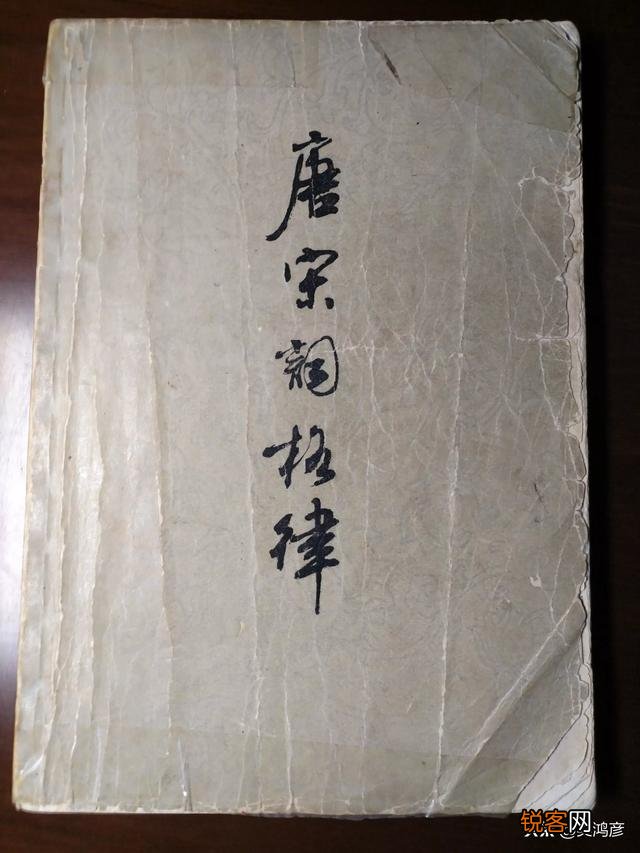 唐宋詞格律
锐客网